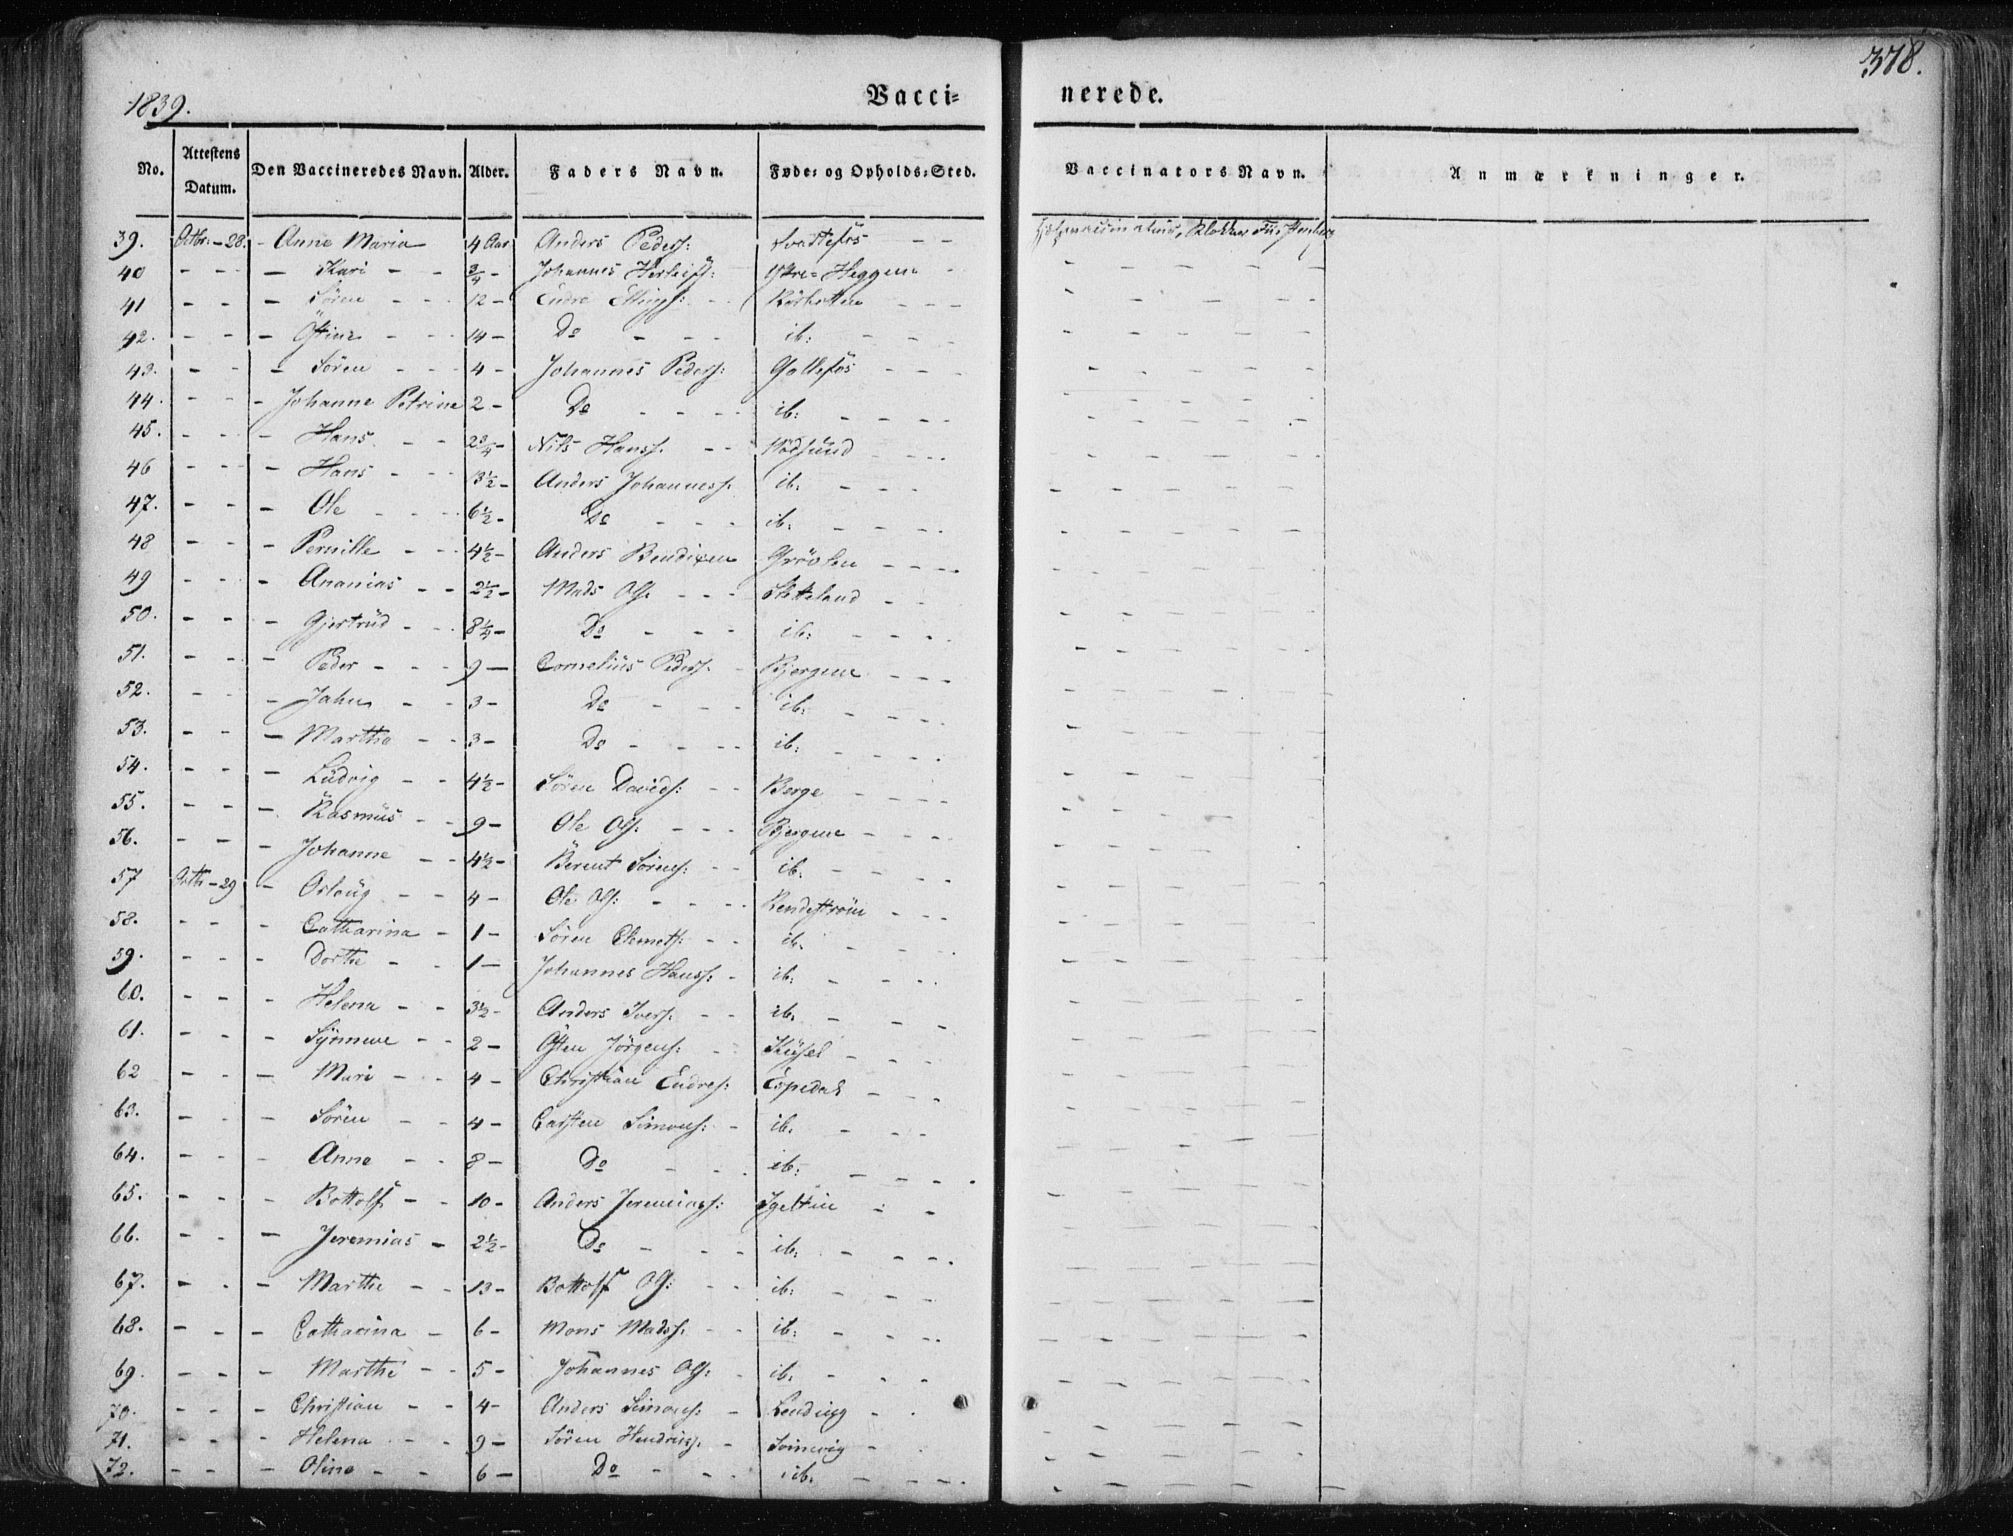 1839.
378.
Vacci=
nerede.
No. Attestens Datum. Den Vaccineredes Navn. Alder. Faders Navn. Føde= og Opholds=Sted. Vaccinators Navn. Anmærkninger.
39. Octbr: - 28. - Anne Maria 4 Aar Anders Peders: - -
40 - - - - Kari - - 3/4 - Johannes Ytre=Heggene -
41 - - - - Sören - - - 12 - Endre Ellings: - -
42. - - - - Östine - - 14 - Do - - - ib: - - - -
43. - - - - Sören - - - 4 - Johannes Peders: Galtefos - - -
44. - - - - Johanne Petrine 2 - Do - - - - ib: - - - -
45. - - - - Hans - - 2 3/4 - Nils Hanss. - - Vödsund - - - -
46 - - - - Hans - - 3 1/2 - Anders Johanness: ib: - - -
47. - - - - Ole - - - 6 1/2 - Do - - - ib: - - - -
48 - - - - Pernille - - - 4 1/2 - Anders Bendixen - - - -
49 - - - - Ananias - - 2 1/2 - Mads Ols: - - - - -
50. - - - - Gjertrud - - - 8 1/4 - Do - - - ib: - - - -
51. - - - - Peder - - - 9 - Cornelius Peders. - Bjergene - - -
52. - - - Jahn - - 3 - Do - - - ib: - - - -
53. - - - - Marthe - - 3 - Do - - - - ib: - - - -
54. - - - - Ludvig - - 4 1/2 - Sören Davids: - - Berge - - - -
55. - - - - Rasmus - - 9 - Ole Ols: - - - Bjergene - - - -
56. - - - - Johanne - - 4 1/2 - Berent Sörens: - ib: - - - -
57 Octbr - 29 - Oslaug - - 4 - Ole Ols: - - - - Rendeström - - -
58. - - - - Catharina - 1 - Sören Clemets: - - ib: - - -
59. - - - - Dorthe - - 1 - Johannes Hanss: - ib: - - - -
60. - - - - Helena - - 3 1/2 - Anders Ivers: - - ib: - - -
61. - - - - Synneve - - 2 - Östen Jörgens: - - - -
62 - - - - Mari - - 4 - Christian Endres: Espedal - - -
63. - - - - Sören - - 4 - Carsten Simons: - ib: - - -
64. - - - - Anne - - 8 - Do - - - ib: - - - -
65. - - - - Bottolf - - 10 - Anders Jeremiass: Igeltiu - -
66. - - - - Jeremias - 2 1/2 - Do - - - ib: - - - -
67. - - - - Marthe - - 13 - Bottolf Ols: - - ib: - - - -
68. - - - - Catharina - 6 - Mons Madss. - - ib: - - - -
69. - - - - Marthe - - 5 - Johannes Ols: - ib: - - -
70. - - - - Christian - - 4 - Anders Simons: - Lending - -
71. - - - - Helena - - 9 - Sören Hendriks. - Svinevig - -
72. - - - - Oline - - 6 - Do - - - ib: - - - -